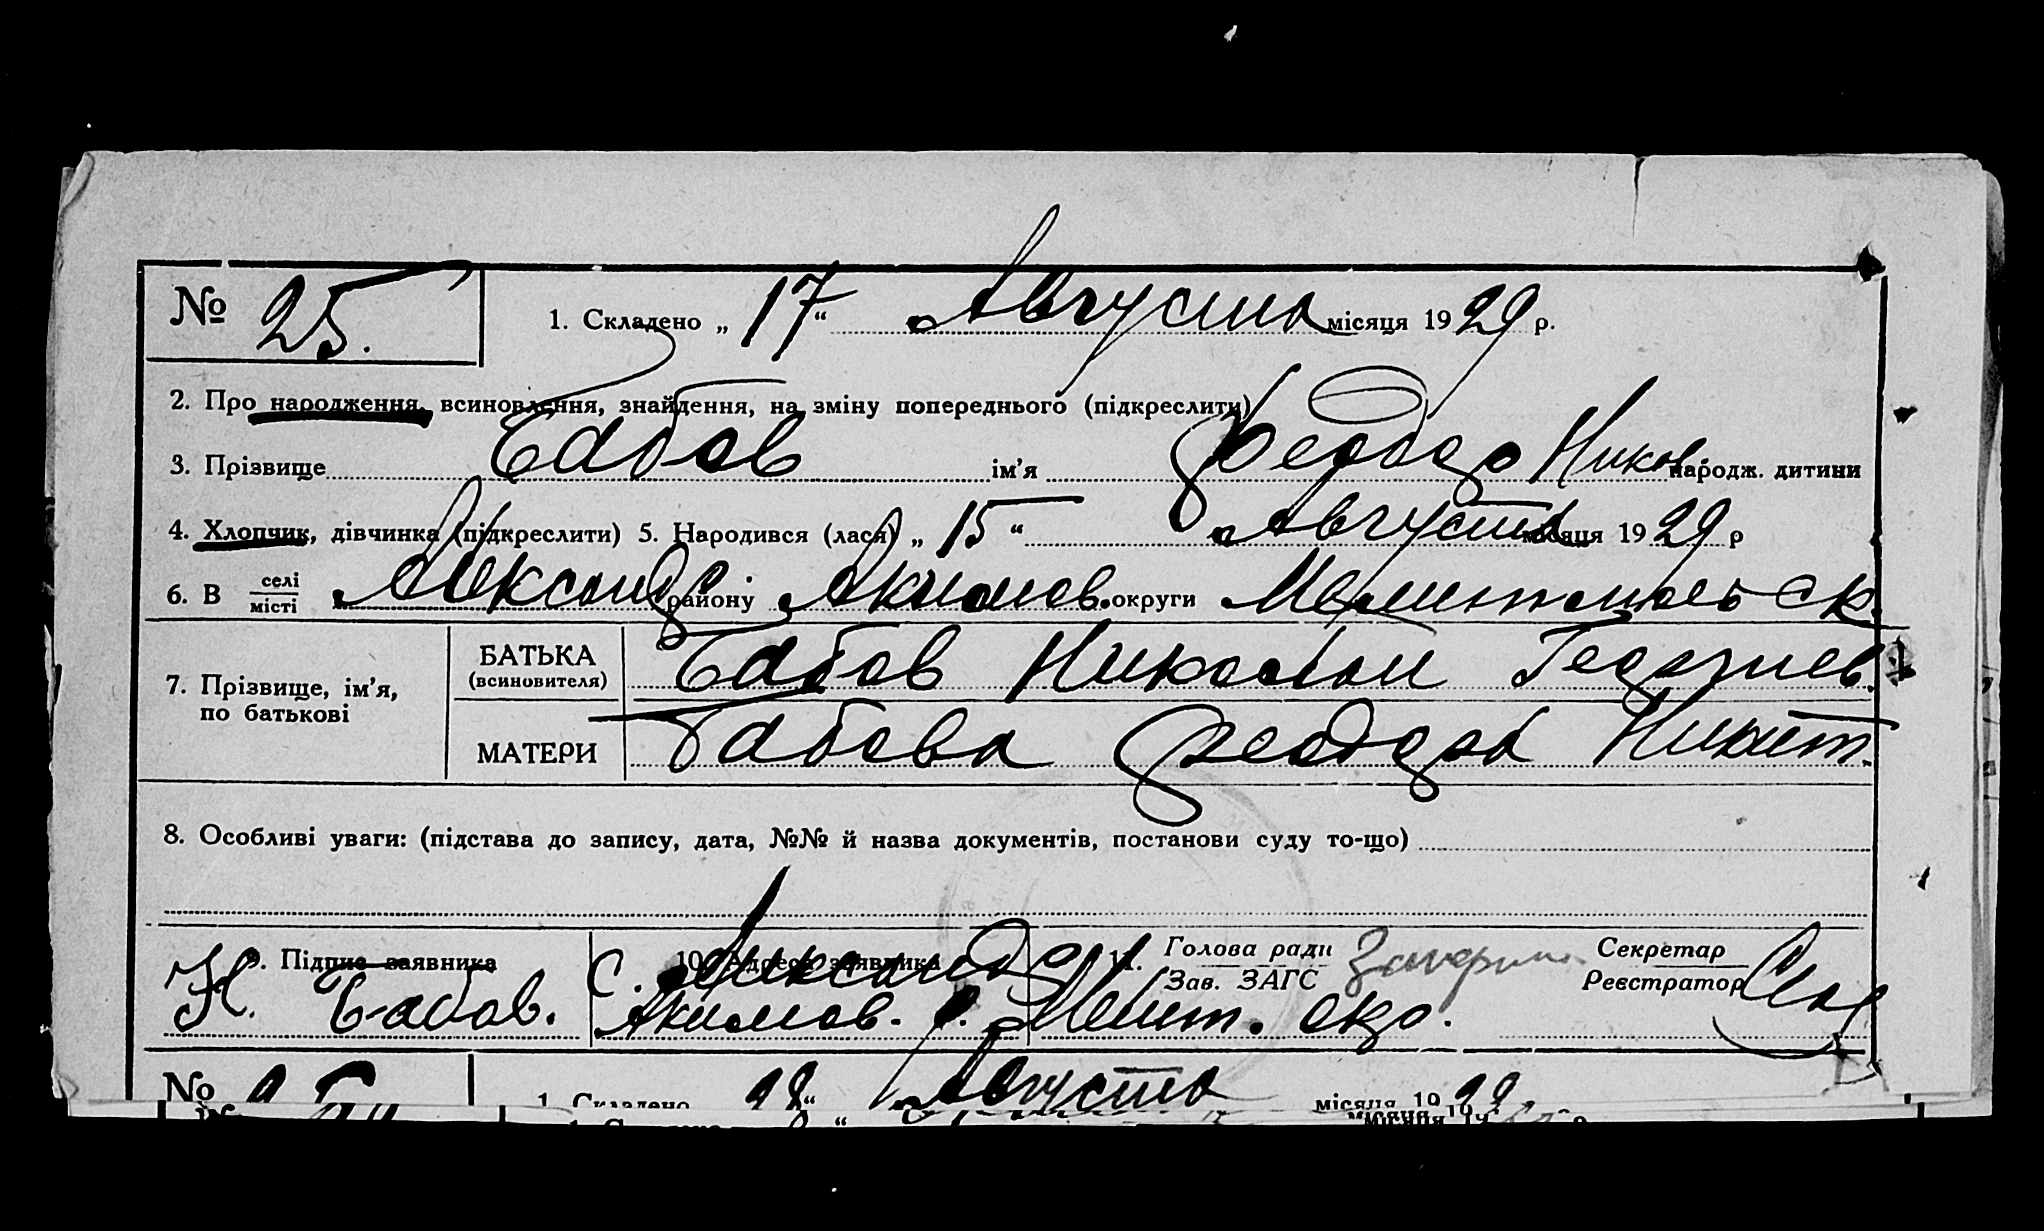 № 25. 1. Складено „ 17 “ Августа місяця 1929 р.
2. Про народження, всиновлення, знайдення, на зміну попереднього (підкреслити)
3. Прізвище Бабов ім’я Феодор Никол. народж. дитини
4. Хлопчик, дівчинка (підкреслити) 5. Народився (лася) „ 15 “ Августа місяця 1929 р
6. В селі місті Александр району Акимов. округи Мелитопольск.
7. Прізвище, ім’я, по батькові
БАТЬКА (всиновителя) Бабов Николай Георгиев.
МАТЕРИ Бабова Феодора Никит.
8. Особливі уваги: (підстава до запису, дата, №№ й назва документів, постанови суду то-що)
9. Підпис заявника 10. Адреса заявника 11. Голова ради Секретар
Зав. ЗАГС Реєстратор
Н. Бабов. С. Александр
Акимов. р. Мелит. окр.
№ 1. Складено 28 “ Августа місяця 1929
місяця 19